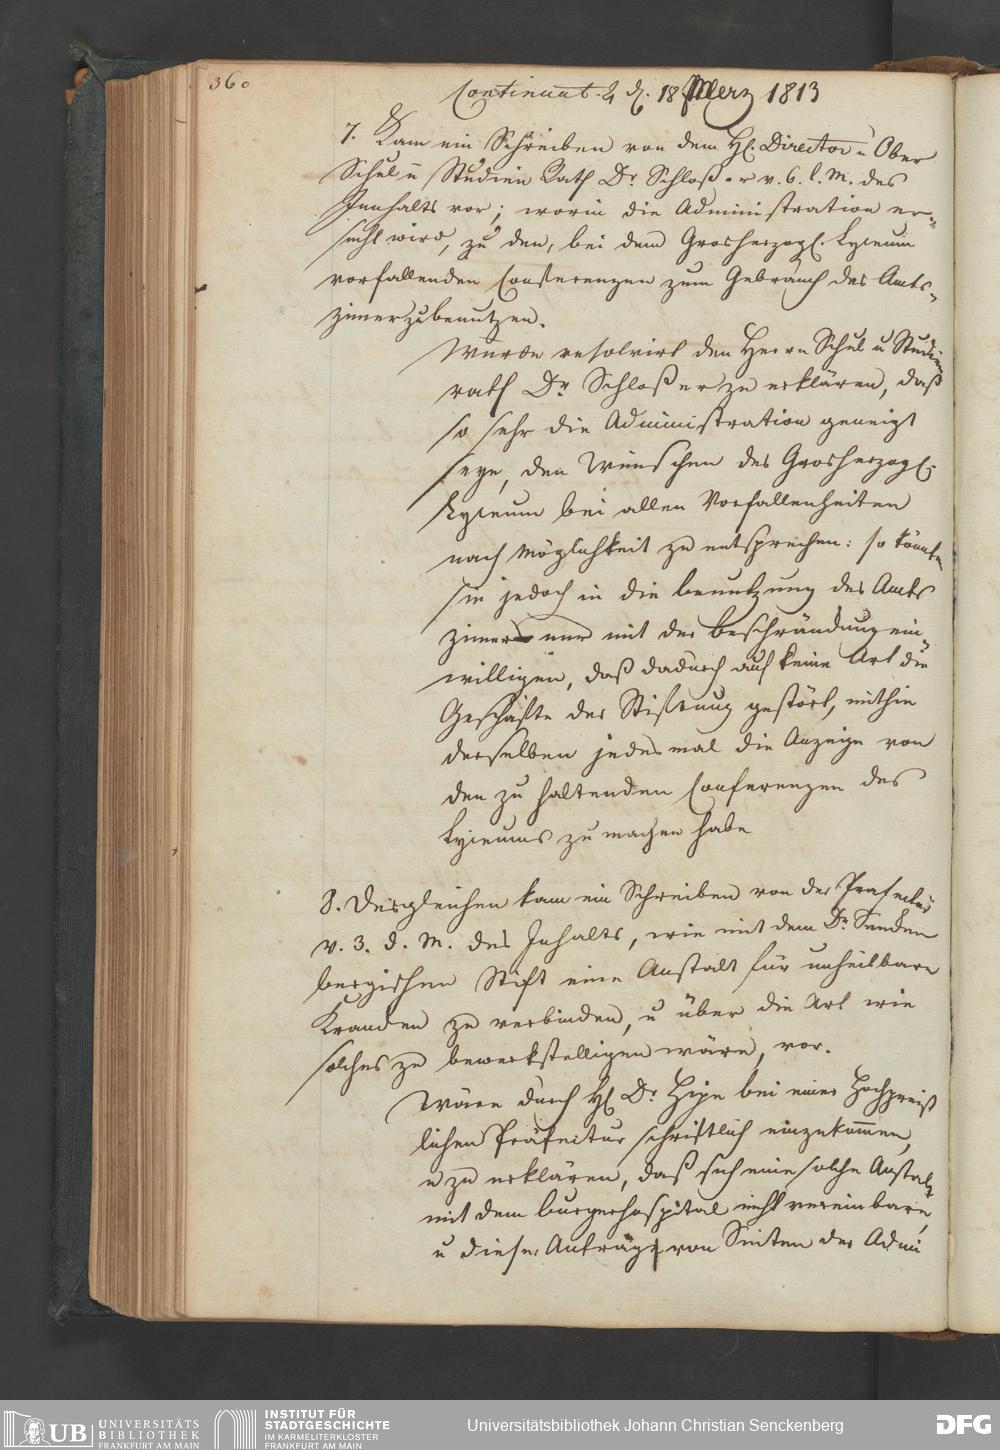 360
Continuat. d. 18 Merz 1813
7. Kam ein Schreiben von dem H. Director u Ober
Schul u Studien Rath Dr Schlosser v. 6. l. M. des
Innhalts vor; worin die Administration er-
sucht wird, zu den, bei dem Grosherzogl. Lyceum
vorfallenden Conferenzen zum Gebrauch des Amts-
zimer zu benutzen.
Wurde resolvirt den Herrn Schul u Studien
rath Dr Schlosser zu erklären, daß
so sehr die Administration geneigt
seye, den Wünschen des Grosherzogl.
Lyceum bei allen Vorfallenheiten
nach Möglichkeit zu entsprechen: so könnte
sie jedoch in die benutzung des Amts
zimers nur mit der beschränckung ein-
willigen, daß dadurch auf keine Art die
Geschäfte der Stiftung gestört, mithin
derselben jedesmal die Anzeige von
den zu haltenden Conferenzen des
Lyceums zu machen habe
8. Desgleichen kam ein Schreiben von der Prafectur
v. 3. d. M. des Inhalts, wie mit dem Dr. Sencken
bergischen Stift eine Anstalt für unheilbare
Krancken zu verbinden, u über die Art wie
solches zu bewerkstelligen wäre, vor.
Wäre durch H Dr bei einer Hochpreiß
lichen Präfectur schriftlich einzukommen,
u zu erklären, daß sich eine solche Anstalt
mit dem burgerhospital nicht vereinbare,
u dieser Anträge von Seiten der Admi
UB UNIVERSITÄTS
BIBLIOTHEK
FRANKFURT AM MAIN
INSTITUT FÜR
STADTGESCHICHTE
IM KARMELITERKLOSTER
FRANKFURT AM MAIN
Universitätsbibliothek Johann Christian Senckenberg
DFG